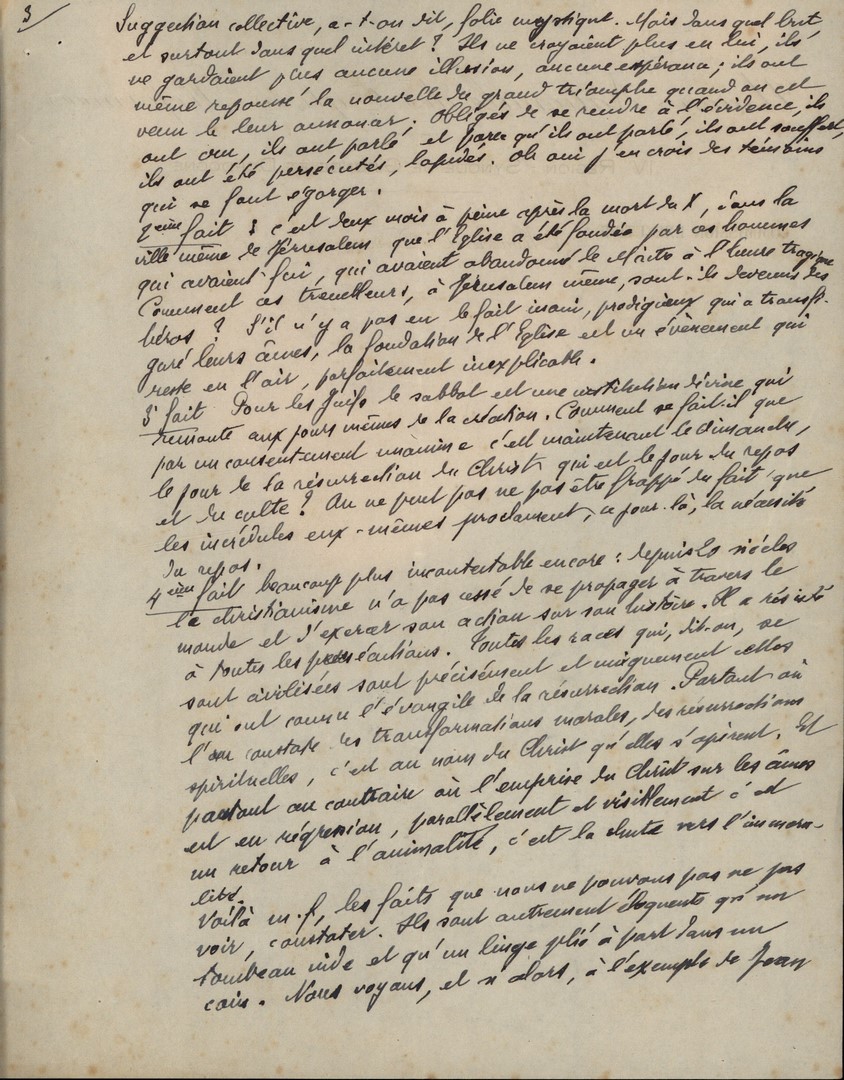 3/
Suggestion collective, a-t-on dit, folie mystique. Mais dans quel but,
et surtout dans quel intérêt ? Ils ne croyaient plus en lui, ils
ne gardaient plus aucune illusion, aucune espérance ; ils ont
même repoussé la nouvelle du grand triomphe quand on est
venu le leur annoncer. Obligés de se rendre à l'évidence, ils
ont cru, ils ont parlé et parce qu'ils ont parlé, ils ont souffert,
ils ont été persécutés, lapidés. Oh oui j'en crois des témoins
qui se font égorger.
2ème fait : c'est deux mois à peine après la mort du X, dans la
ville même de Jérusalem que l'Eglise a été fondée par ces hommes
qui avaient fui, qui avaient abandonné le Maître à l'heure tragique
Comment ces trembleurs, à Jérusalem même, sont-ils devenus des
héros ? S'il n'y a pas eu le fait inouï, prodigieux qui a transfi-
guré leurs âmes, la fondation de l'Eglise est un évènement qui
reste en l'air, parfaitement inexplicable.
3e fait Pour les Juifs le sabbat est une institution divine qui
remonte aux jours mêmes de la création. Comment se fait-il que
par un consentement unanime c'est maintenant le dimanche,
le jour de la résurrection du Christ qui est le jour du repos
et du culte ? On ne peut pas ne pas être frappé du fait que
les incrédules eux-mêmes proclament, ce jour-là, la nécessité
du repos.
4ème fait beaucoup plus incontestable encore : depuis 20 siècles
le christianisme n'a pas cessé de se propager à travers le
monde et d'exercer son action sur son histoire. Il a résisté
à toutes les persécutions. Toutes les races qui, dit-on, se
sont civilisées sont précisément et uniquement celles
qui ont connu l'évangile de la résurrection. Partout où
l'on constate des transformations morales, des résurrections
spirituelles, c'est au nom du Christ qu'elles s'opèrent. Et
partout au contraire où l'emprise du Christ sur les âmes
est en régression, parallèlement et visiblement c'est
un retour à l'animalité, c'est la chute vers l'immora-
lité.
Voilà m.f, les faits que nous ne pouvons pas ne pas
voir, constater. Ils sont autrement éloquents qu'un
tombeau vide et qu'un linge plié à part dans un
coin. Nous voyons, et si alors, à l'exemple de Jean